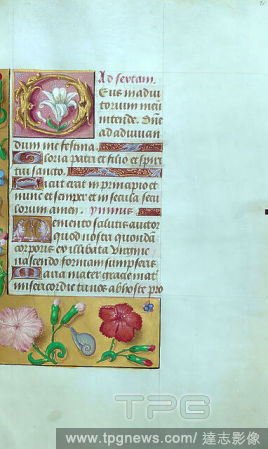 Ad sextam.
Deus in adiu
torium meū
intende. Dn̄e
ad adiuvan
dum me festina.
Gloria patri et filio et spiri
tui sancto.
Sicut erat in principio et
nunc et semper et in secula secu
lorum amen. ymnus
Memento salutis auctor
quod nostri quondā
corporis ex illibata virgine
nascendo formam sumpseris.
Maria mater gracie mat
misericordie tu nos ab hoste pro
TPG
www.tpgnews.com/達志影像